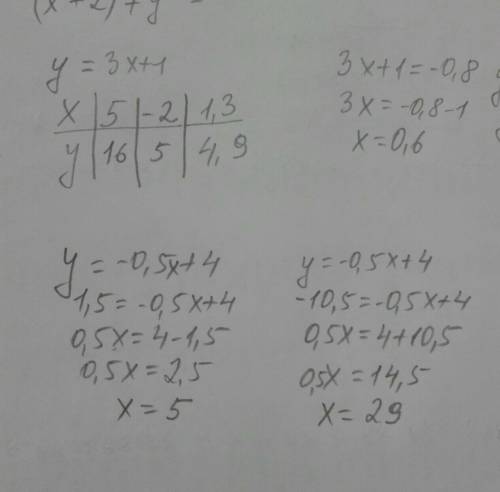 (x+2)+y
y = 3x+1
x | 5 | -2 | 1,3
y | 16 | 5 | 4,9
3x+1=-0,8
3x=-0,8-1
x=0,6
y = -0,5x+4
1,5=-0,5x+4
0,5x=4-1,5
0,5x=2,5
x=5
y=-0,5x+4
-10,5=-0,5x+4
0,5x=4+10,5
0,5x=14,5
x=29